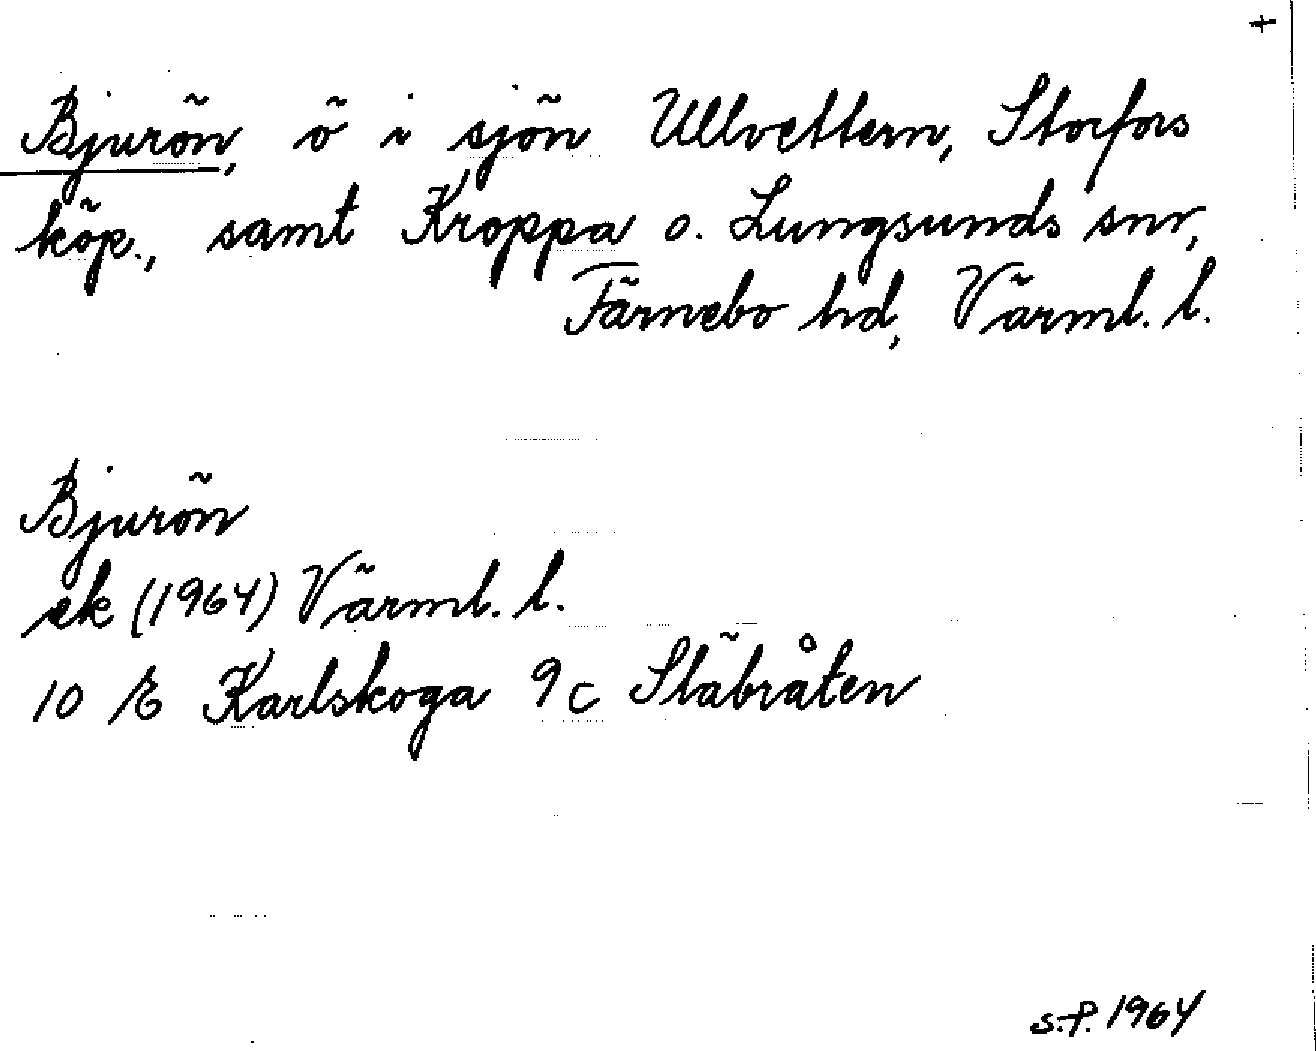 +
Bjurön, ö i sjön Ullvettern, Storfors
köp., samt Kroppa o. Lungsunds snr,
Färnebo hd, Värml. l.
Bjurön
ek (1964) Värml. l.
10 E Karlskoga 9c Stäbråten
s.f. 1964